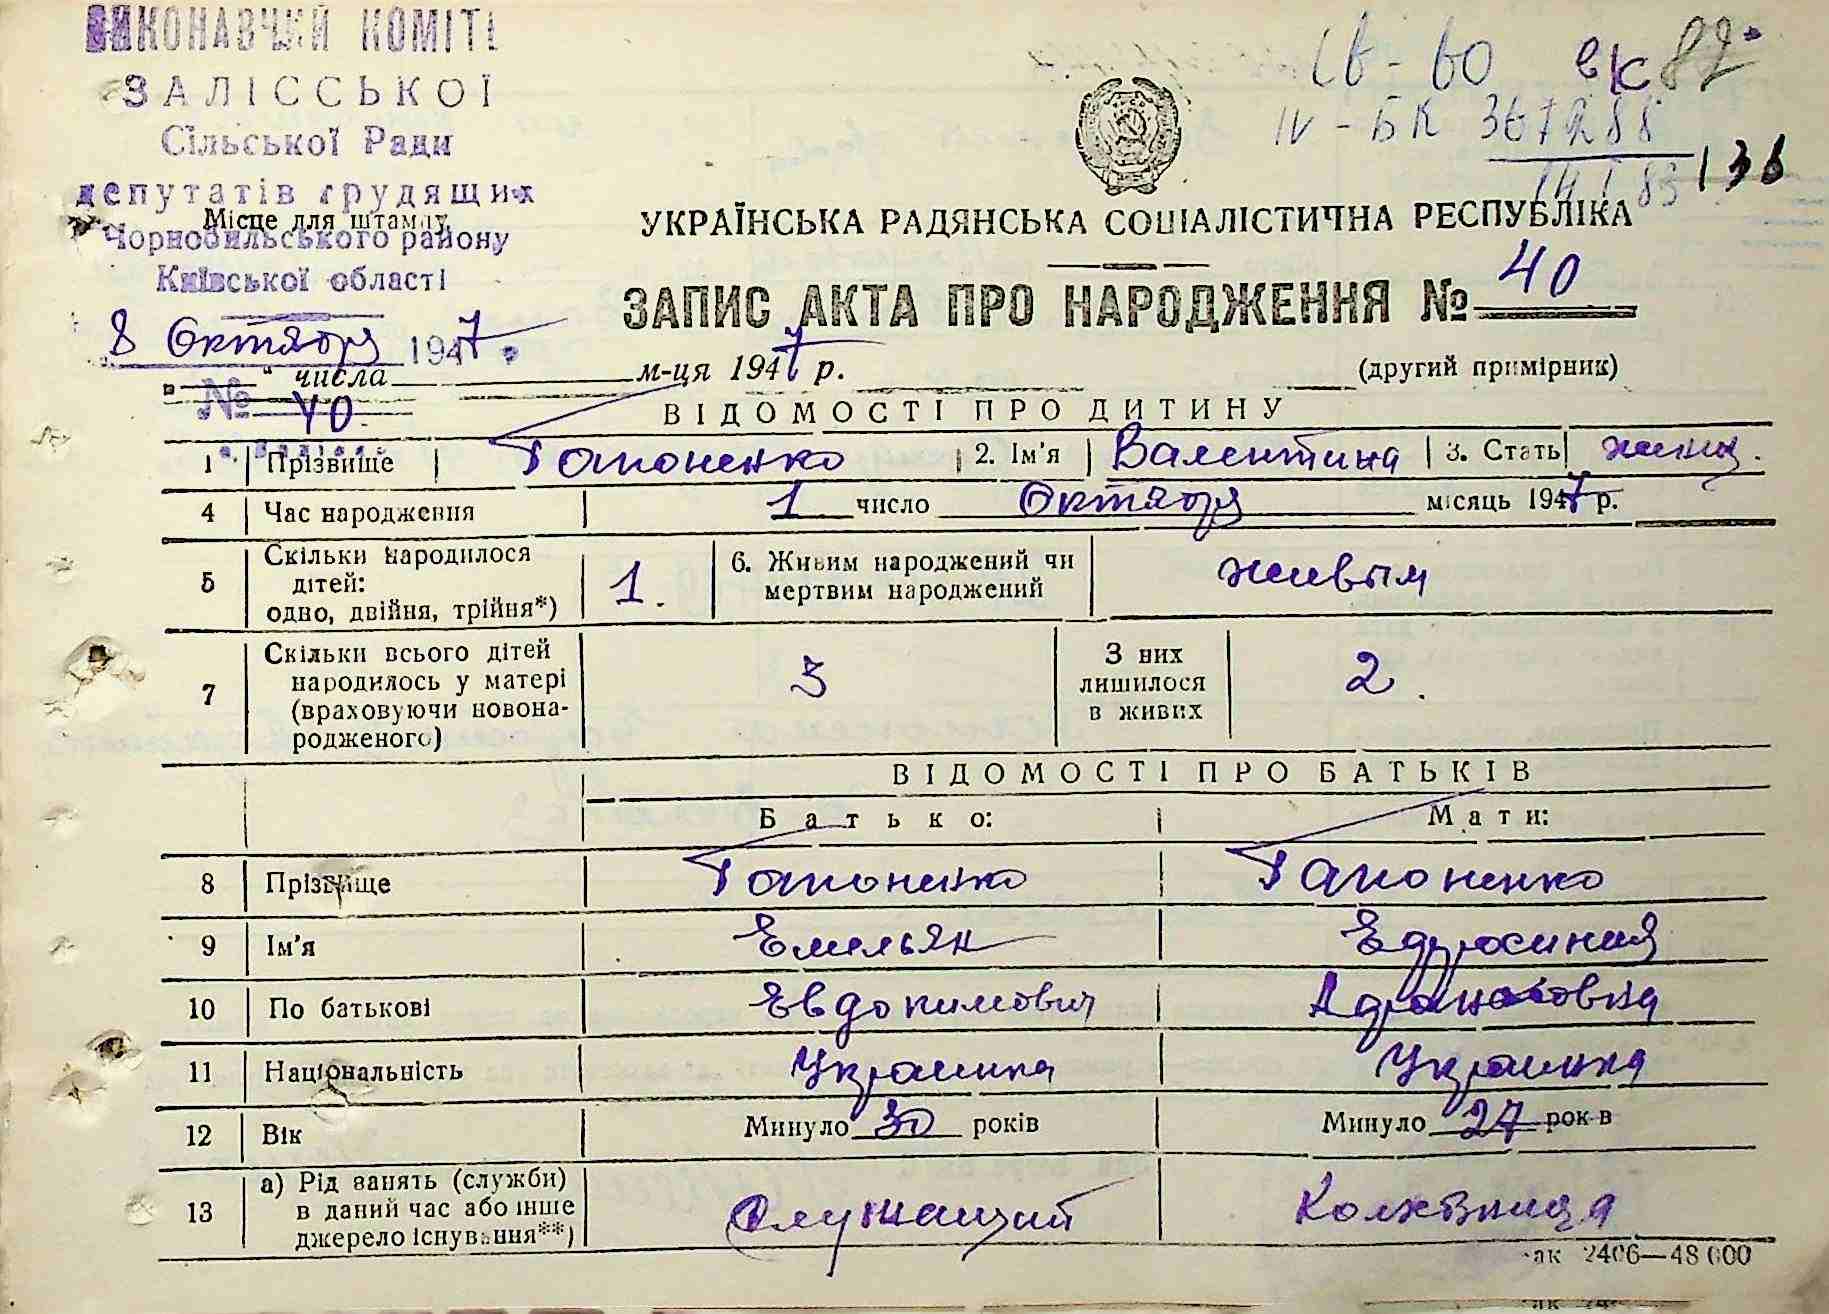 ВИКОНАВЧИЙ КОМІТЕ
ЗАЛІССЬКОЇ
Сільської Ради
депутатів трудящих
Місце для штампу
Чорнобильського району
Київської області
8 Октября 1947.
№ 40.
Св-во
IV-БК 367288
14 I 83
136
УКРАЇНСЬКА РАДЯНСЬКА СОЦІАЛІСТИЧНА РЕСПУБЛІКА
ЗАПИС АКТА ПРО НАРОДЖЕННЯ № 40
" числа м-ця 1947 р. (другий примірник)
ВІДОМОСТІ ПРО ДИТИНУ
1 Прізвище Гапоненко 2. Ім'я Валентина 3. Стать женщ.
4 Час народження 1 число Октября місяць 1947 р.
5 Скільки народилося дітей: одно, двійня, трійня*) 1. 6. Живим народжений чи мертвим народжений живым
7 Скільки всього дітей народилось у матері (враховуючи новонародженого) 3 З них лишилося в живих 2.
ВІДОМОСТІ ПРО БАТЬКІВ
Батько: Мати:
8 Прізвище Гапоненко Гапоненко
9 Ім'я Емельян
10 По батькові Евдокимович
11 Національність Украинка Украинка
12 Вік Минуло 30 років Минуло 27 років
13 а) Рід занять (служби) в даний час або інше джерело існування**) Служащий Колхозница
2406—48 000